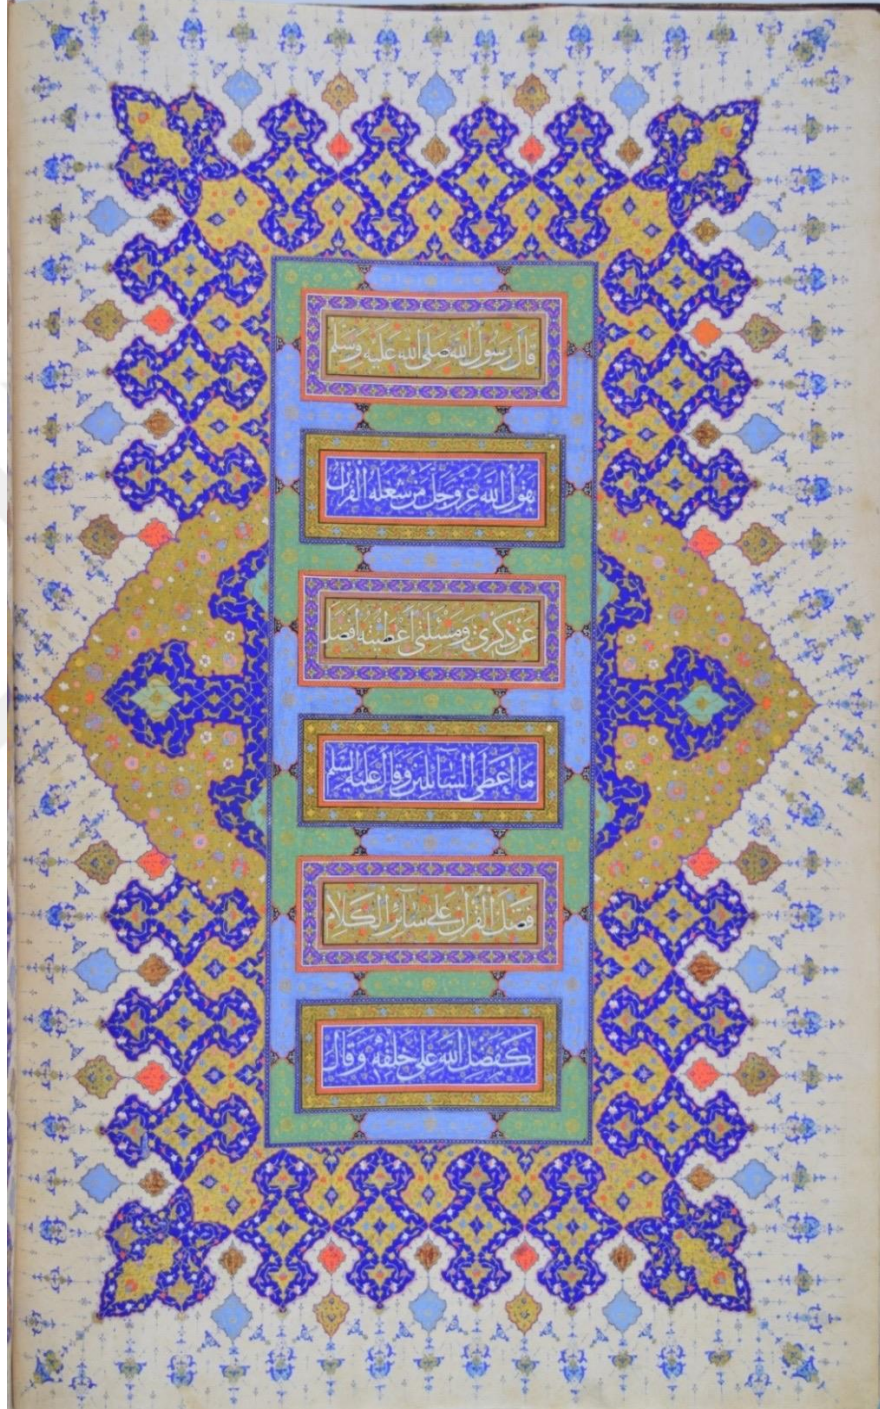 قال رسول الله صلى الله عليه وسلم
يقول الله عز وجل من شغله القرآن
عن ذكرى ومسئلتى أعطيته افضل
ما اعطى السائلين وقال عليه السلم
فضل القرآن على سآئر الكلام
كفضل الله على خلقه وقال